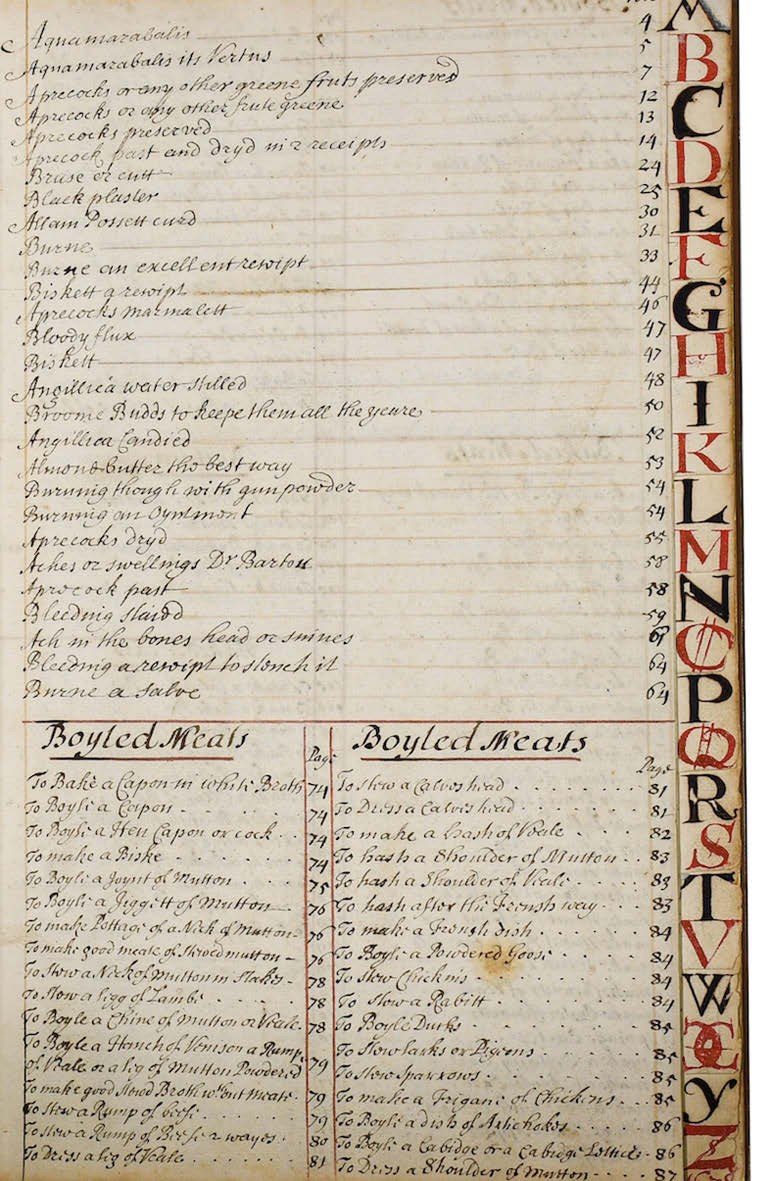 Aquamarabalis 4
Aquamarabalis its Vertus 5
Aprecocks or any other greene fruts preserved 7
Aprecocks or any other frute greene 12
Aprecocks preserved 13
Aprecock past and dryd in 2 receipts 14
Bruse or cutt 24
Black plaster 25
Allam Possett curd 30
Burne 31
Burne an excellent receipt 33
Biskett a receipt 44
Aprecocks marmalett 46
Bloody flux 47
Biskett 47
Angillica water stilled 48
Broome Budds to keepe them all the yeare 50
Angillica Candied 52
Almond butter the best way 53
Burning though with gun powder 54
Burning an Oyntment 54
Aprecocks dryd 55
Aches or swellings Dr Barton 58
Aprecock past 58
Bleeding staied 59
Ach in the bones head or sinnes
Bleeding a receipt to stench it 64
Burne a salve 64
Boyled Meats
Page
To Bake a Capon in white Broth 74
To Boyle a Capon 74
To Boyle a Hen Capon or cock 74
To make a Biske 74
To Boyle a Joynt of Mutton 75
To Boyle a Jiggett of Mutton 76
To make Pottage of a Nick of Mutton 76
To make good meate of Stewed mutton 76
To Stew a Nick of Mutton in Stakes 78
To Stew a ligg of Lambe 78
To Boyle a Chine of Mutton or Veale 78
To Boyle a Hanch of Venison a Rump
of Veale or a lig of Mutton Powdered 79
To make good Stewd Broth wthout Meate 79
To Stew a Rump of beefe 79
To Stew a Rump of Beefe 2 wayes 80
To Dress a lig of Veale 81
Boyled Meats
Page
To stew a Calves head 81
To Dress a Calves head 81
To make a hash of Veale 82
To hash a Shoulder of Mutton 83
To hash a Shoulder of Veale 83
To hash after the French way 83
To make a French dish 84
To Boyle a Powdered Goose 84
To stew Chickins 84
To stew a Rabitt 84
To Boyle Ducks 85
To Stew larks or Pigeons 85
To Stew Sparrows 85
To make a Frigane of Chickins 85
To Boyle a dish of Artichokes 86
To Boyle a Cabidge or a Cabidge Lettice 86
To Dress a Shoulder of Mutton 87
B
C
D
E
F
G
H
I
K
L
M
N
O
P
Q
R
S
T
V
W
X
Y
Z